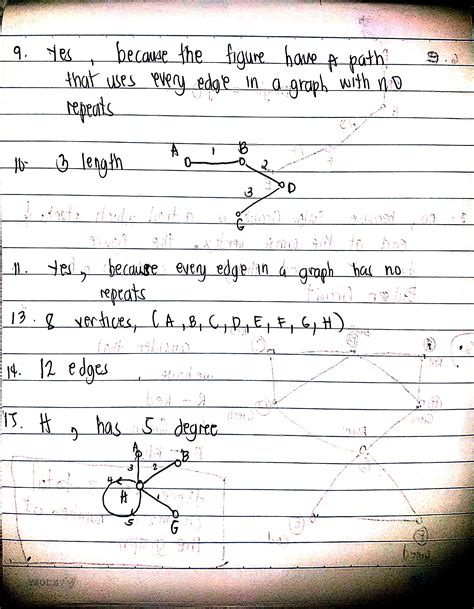 9. Yes, because the figure have A path
that uses every edge in a graph with no
repeats
10. 3 length
A 1 B
2
D
3
G
11. Yes, because every edge in a graph has no
repeats
13. 8 vertices, (A, B, C, D, E, F, G, H)
14. 12 edges
15. H, has 5 degree
A
B
3 2
4
H 1
5 G